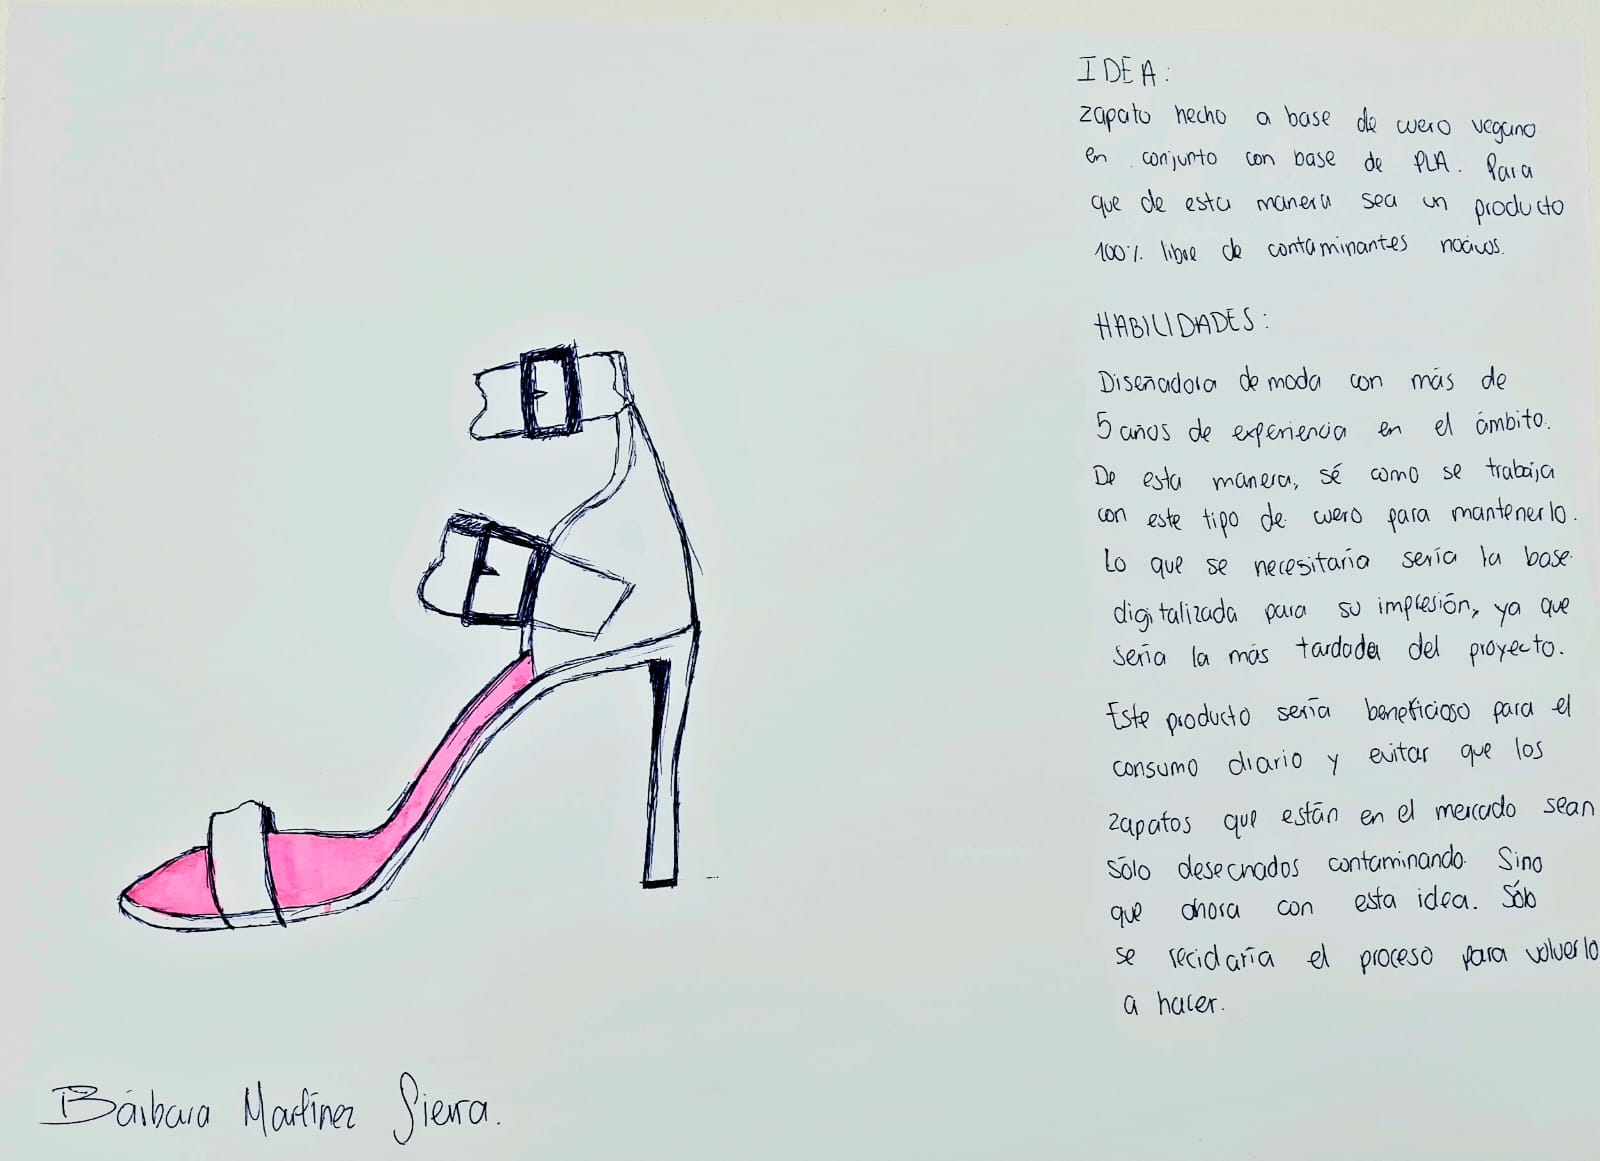 IDEA:
zapato hecho a base de cuero vegano
en conjunto con base de PLA. Para
que de esta manera sea un producto
100% libre de contaminantes nocivos.
HABILIDADES:
Diseñadora de moda con más de
5 años de experiencia en el ámbito.
De esta manera, sé como se trabaja
con este tipo de cuero para mantenerlo.
Lo que se necesitaria sería la base
digitalizada para su impresión, ya que
sería la más tardada del proyecto.
Este producto sería beneficioso para el
consumo diario y evitar que los
zapatos que están en el mercado sean
sólo desechados contaminando. Sino
que ahora con esta idea. Sólo
se reciclaría el proceso para volverlo
a hacer.
Bárbara Martínez Sierra.